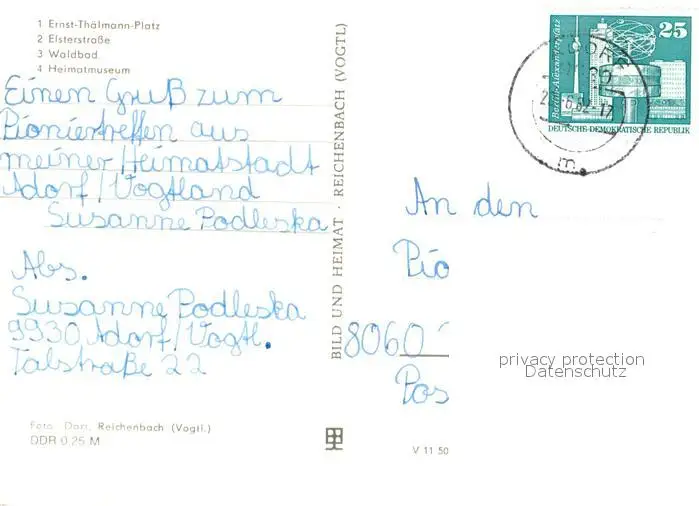 1 Ernst-Thälmann-Platz
2 Elsterstraße
3 Waldbad
4 Heimatmuseum
Einen Gruß zum
Pioniertreffen aus
meiner Heimatstadt
Adorf/Vogtland
Susanne Podleska
Abs.
Susanne Podleska
9930 Adorf/Vogtl.
Talstraße 22
Foto: Darr, Reichenbach (Vogtl.)
DDR 0,25 M
BILD UND HEIMAT · REICHENBACH (VOGTL)
V 11 50
Berlin-Alexanderplatz
25
DEUTSCHE DEMOKRATISCHE REPUBLIK
m
An den
Pio
8060
Pos
privacy protection
Datenschutz